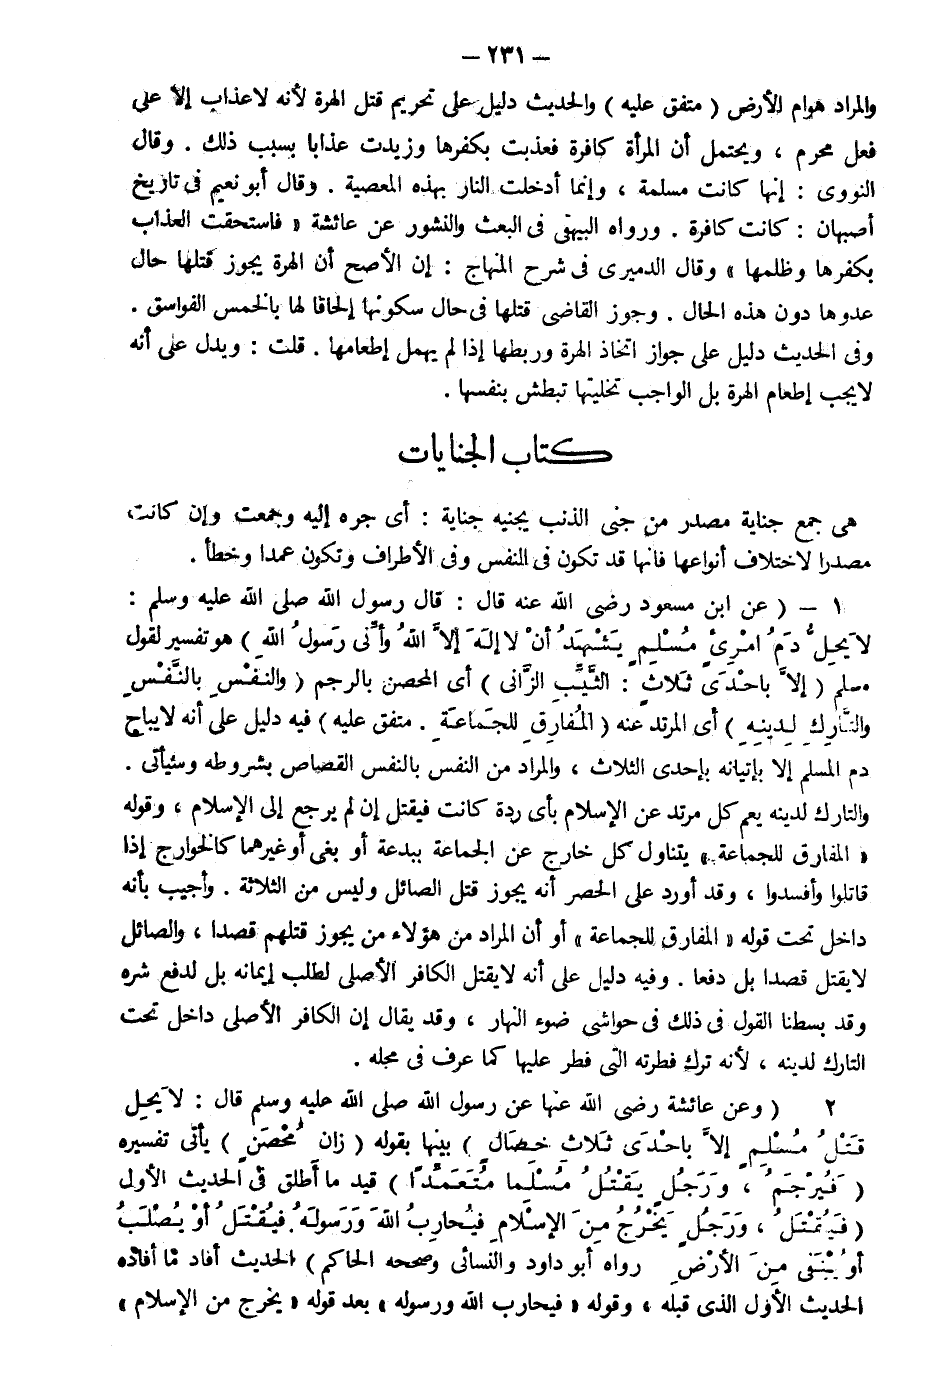 – ٢٣١ –
والمراد هوام الأرض ( متفق عليه ) والحديث دليل على تحريم قتل الهرة لأنه لاعذاب إلا على
فعل محرم ، ويحتمل أن المرأة كافرة فعذبت بكفرها وزيدت عذابا بسبب ذلك . وقال
النووى : إنها كانت مسلمة ، وإنما أدخلت النار بهذه المعصية . وقال أبو نعيم فى تاريخ
أصبهان : كانت كافرة . ورواه البيهقى فى البعث والنشور عن عائشة « فاستحقت العذاب
بكفرها وظلمها » وقال الدميرى فى شرح المنهاج : إن الأصح أن الهرة يجوز قتلها حال
عدوها دون هذه الحال . وجوز القاضى قتلها فى حال سكونها إلحاقا لها بالخمس الفواسق .
وفى الحديث دليل على جواز اتخاذ الهرة وربطها إذا لم يهمل إطعامها . قلت : ويدل على أنه
لايجب إطعام الهرة بل الواجب تخليتها تبطش بنفسها .
كتاب الجنايات
هى جمع جناية مصدر من جنى الذنب يجنيه جناية : أى جره إليه وجمعت وإن كانت
مصدرا لاختلاف أنواعها فانها قد تكون فى النفس وفى الأطراف وتكون عمدا وخطأ .
١ – ( عن ابن مسعود رضى الله عنه قال : قال رسول الله صلى الله عليه وسلم :
لاَ يَحِلُّ دَمُ امْرِئٍ مُسْلِمٍ يَشْهَدُ أَنْ لاَ إِلَهَ إِلاَّ اللهُ وَأَنِّى رَسُولُ اللهِ ) هو تفسير لقول
مسلم ( إِلاَّ بِاحْدَى ثَلاَثٍ : الثَّيِّبِ الزَّانِى ) أى المحصن بالرجم ( وَالنَّفْسِ بِالنَّفْسِ
وَالتَّارِكِ لِدِينِهِ ) أى المرتد عنه ( المُفَارِقِ لِلجَمَاعَةِ . متفق عليه ) فيه دليل على أنه لايباح
دم المسلم إلا بإتيانه بإحدى الثلاث ، والمراد من النفس بالنفس القصاص بشروطه وسيأتى .
والتارك لدينه يعم كل مرتد عن الإسلام بأى ردة كانت فيقتل إن لم يرجع إلى الإسلام ، وقوله
« المفارق للجماعة » يتناول كل خارج عن الجماعة ببدعة أو بغى أو غيرهما كالخوارج إذا
قاتلوا وأفسدوا ، وقد أورد على الحصر أنه يجوز قتل الصائل وليس من الثلاثة . وأجيب بأنه
داخل تحت قوله « المفارق للجماعة » أو أن المراد من هؤلاء من يجوز قتلهم قصدا ، والصائل
لايقتل قصدا بل دفعا . وفيه دليل على أنه لايقتل الكافر الأصلى لطلب إيمانه بل لدفع شره
وقد بسطنا القول فى ذلك فى حواشى ضوء النهار ، وقد يقال إن الكافر الأصلى داخل تحت
التارك لدينه ، لأنه ترك فطرته التى فطر عليها كما عرف فى محله .
٢ ( وعن عائشة رضى الله عنها عن رسول الله صلى الله عليه وسلم قال : لاَ يَحِلُّ
قَتْلُ مُسْلِمٍ إِلاَّ بِاحْدَى ثَلاَثِ خِصَالٍ ) بينها بقوله ( زَانٍ مُحْصَنٍ ) يأتى تفسيره
( فَيُرْجَمُ ، وَرَجُلٍ يَقْتُلُ مُسْلِمًا مُتَعَمِّدًا ) قيد ما أطلق فى الحديث الأول
( فَيُقْتَلُ ، وَرَجُلٍ يَخْرُجُ مِنَ الإِسْلاَمِ فَيُحَارِبُ اللهَ وَرَسُولَهُ فَيُقْتَلُ أَوْ يُصْلَبُ
أَوْ يُنْفَى مِنَ الأَرْضِ رواه أبو داود والنسائى وصححه الحاكم ) الحديث أفاد ما أفاده
الحديث الأول الذى قبله ، وقوله « فيحارب الله ورسوله » بعد قوله « يخرج من الإسلام »